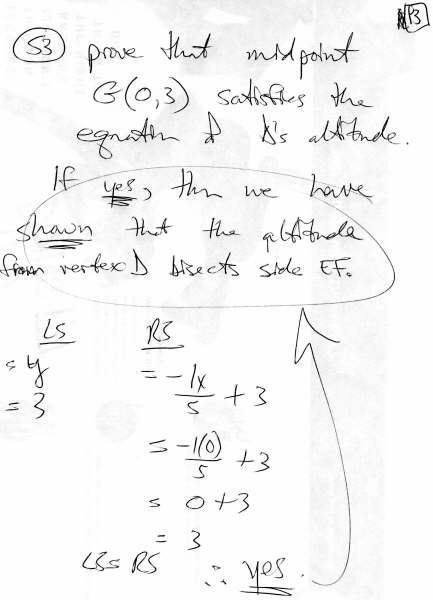 13
S3 prove that midpoint
G(0,3) satisfies the
equation of D's altitude.
If yes, then we have
shown that the altitude
from vertex D bisects side EF.
LS RS
= y = -1x/5 + 3
= 3
= -1(0)/5 + 3
= 0 + 3
= 3
LS = RS ∴ yes.